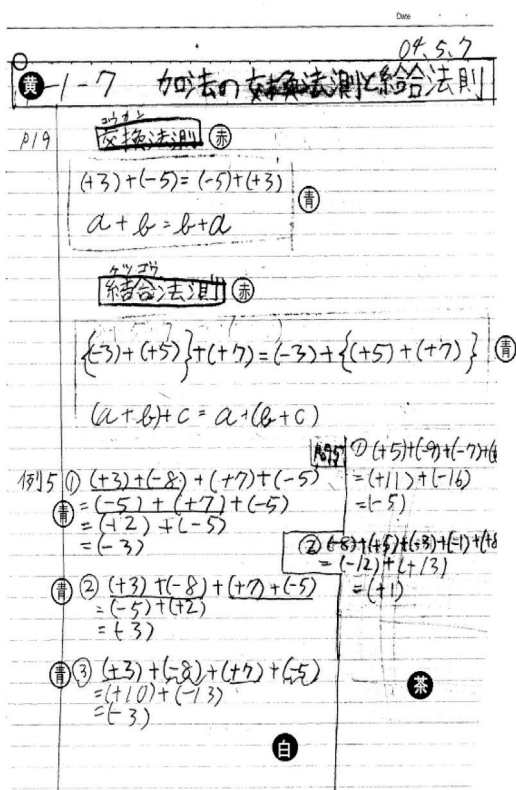 Date
04.5.7
黄 1-7 加法の交換法則と結合法則
P19
コウカン
交換法則 赤
(+3)+(-5)=(-5)+(+3)
a+b=b+a
青
ケツゴウ
結合法則 赤
{(-3)+(+5)}+(+7)=(-3)+{(+5)+(+7)} 青
(a+b)+c=a+(b+c)
例5 ① (+3)+(-8)+(+7)+(-5)
青 =(-5)+(+7)+(-5)
=(+2)+(-5)
=(-3)
青 ② (+3)+(-8)+(+7)+(-5)
=(-5)+(+2)
=(-3)
青 ③ (+3)+(-8)+(+7)+(-5)
=(+10)+(-13)
=(-3)
① (+5)+(-9)+(-7)+(
=(+11)+(-16)
=(-5)
② (-8)+(+5)+(-3)+(-1)+(+8
=(-12)+(+13)
=(+1)
茶
白